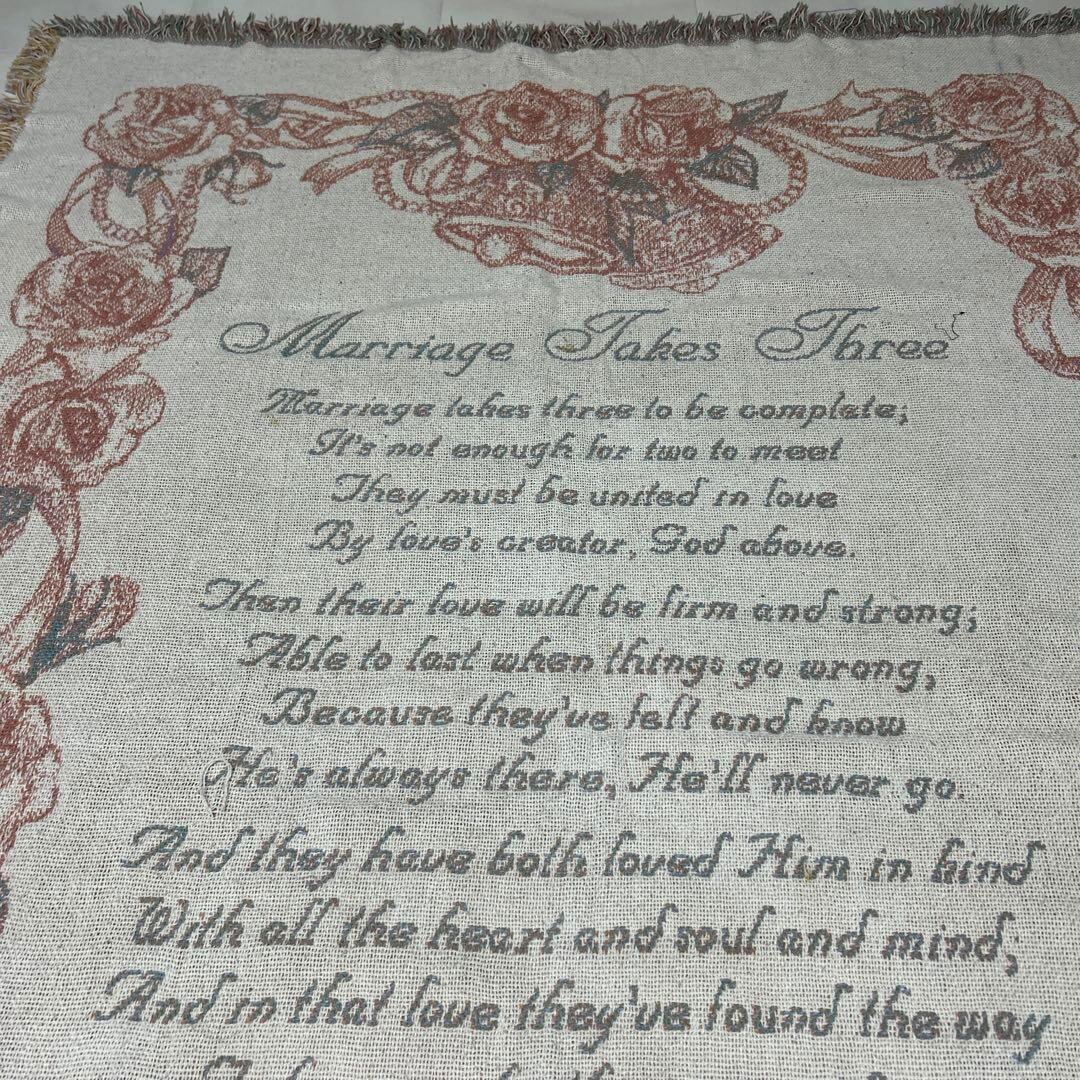 Marriage Takes Three
Marriage takes three to be complete;
It's not enough for two to meet
They must be united in love
By love's creator, God above.
Then their love will be firm and strong;
Able to last when things go wrong,
Because they've felt and know
He's always there, He'll never go.
And they have both loved Him in kind
With all the heart and soul and mind;
And in that love they've found the way